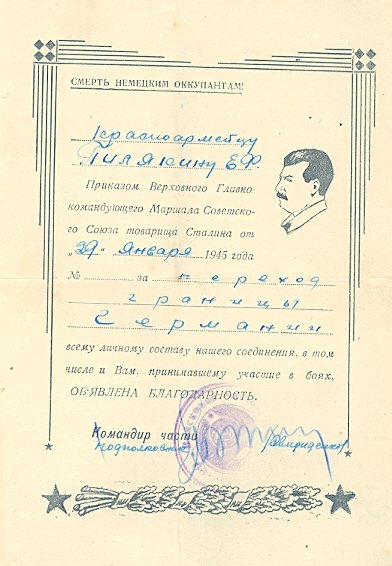 СМЕРТЬ НЕМЕЦКИМ ОККУПАНТАМ!
Красноармейцу
Гилякину Е.Ф.
Приказом Верховного Главно-
командующего Маршала Советско-
го Союза товарища Сталина от
„29" Января 1945 года
№ за переход
границы
Германии
всему личному составу нашего соединения, в том
числе и Вам, принимавшему участие в боях,
ОБ'ЯВЛЕНА БЛАГОДАРНОСТЬ.
Командир части
подполковник (Свириденко)